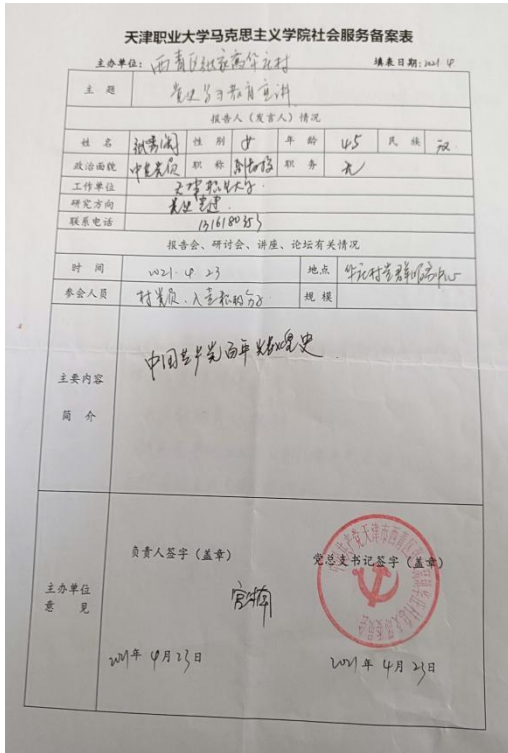 天津职业大学马克思主义学院社会服务备案表
主办单位：西青区张家窝 村 填表日期：2021.4
主 题 党史学习教育宣讲
报告人（发言人）情况
姓 名 性 别 女 年 龄 45 民 族 汉
政治面貌 中共党员 职 称 副教授 职 务 无
工作单位 天津职业大学
研究方向 党史党建
联系电话
报告会、研讨会、讲座、论坛有关情况
时 间 2021.4.23 地点 村党群服务中心
参会人员 村党员、入党积极分子 规 模
主要内容
简 介
中国共产党百年 史
主办单位
意 见
负责人签字（盖章） 党总支书记签字（盖章）
2021年4月23日 2021年4月23日